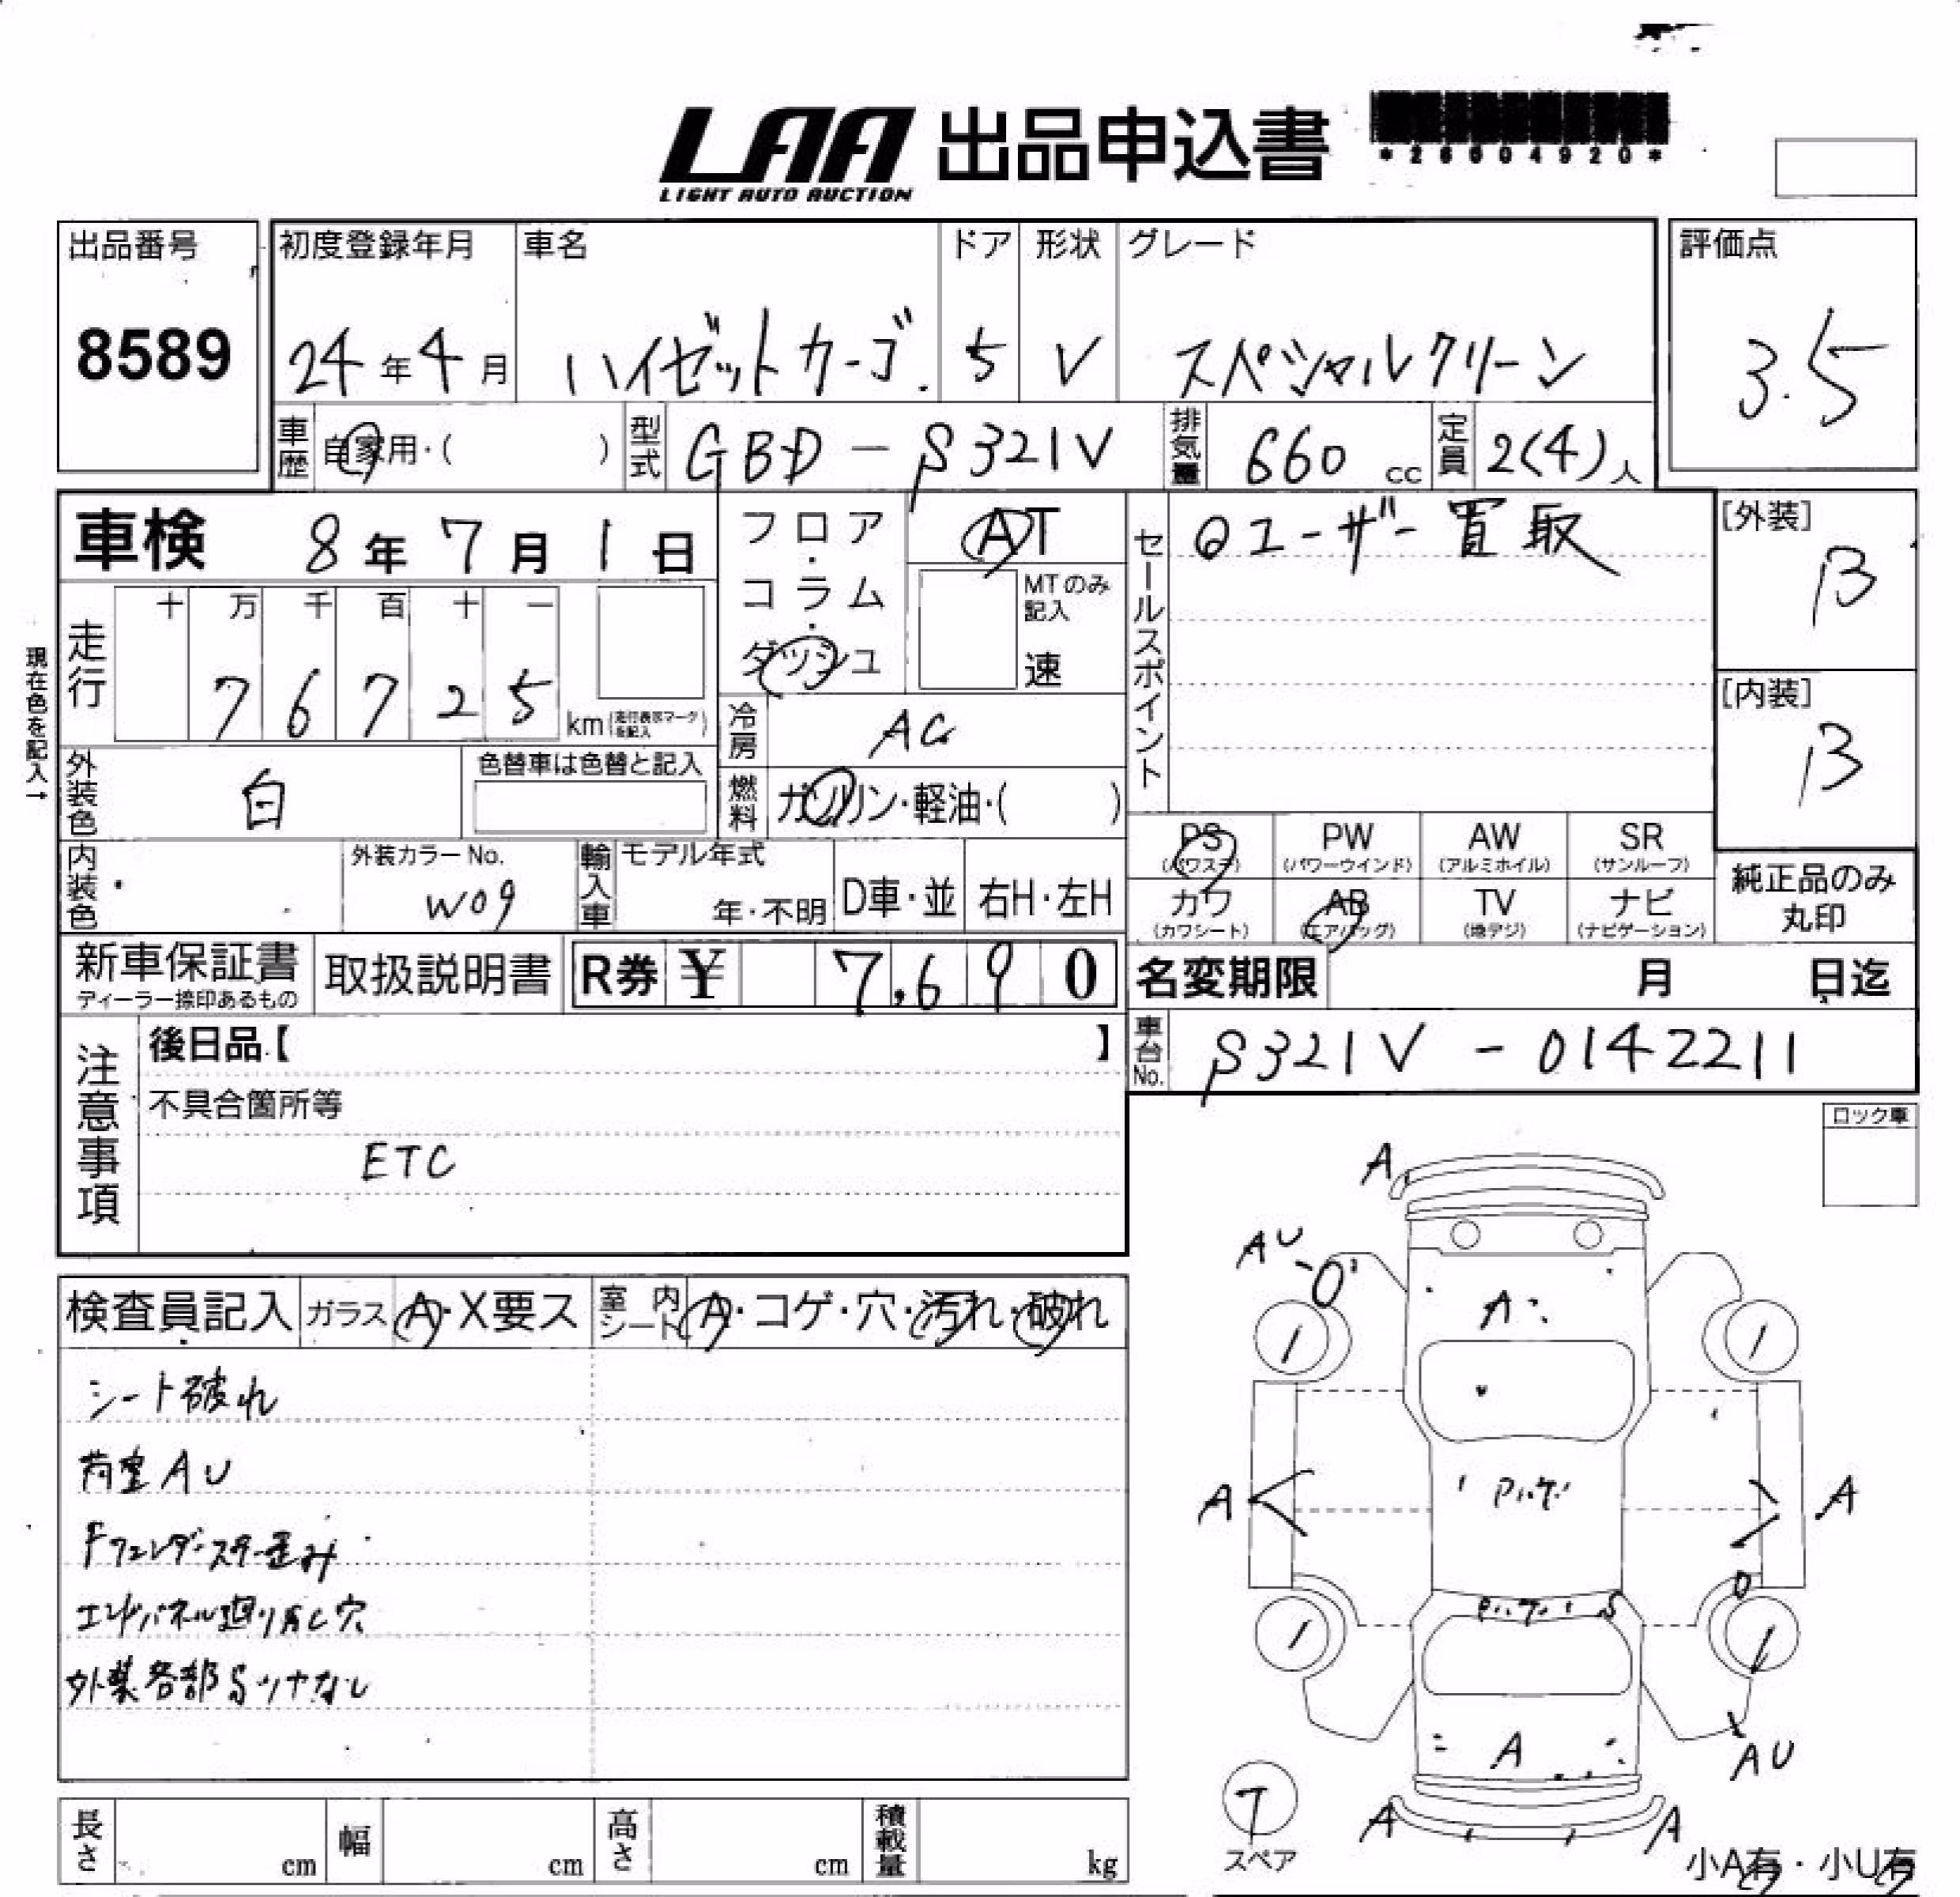 LAA 出品申込書
LIGHT AUTO AUCTION
*26004920*
出品番号
8589
初度登録年月 車名 ドア 形状 グレード
24年4月 ハイゼットカーゴ 5 V スペシャルクリーン
評価点
3.5
車歴 自家用・( ) 型式 GBD-S321V 排気量 660 cc 定員 2(4)人
車検 8年7月1日
フロア・コラム・ダッシュ
AT
MTのみ記入
速
セールスポイント
ユーザー買取
[外装]
B
[内装]
B
現在色を記入→
走行 十 万 千 百 十 一
7 6 7 2 5 km(走行表示マークを記入)
冷房 AC
外装色 白 色替車は色替と記入
燃料 ガソリン・軽油・( )
内装色 外装カラーNo. W09
輸入車 モデル年式 年・不明 D車・並 右H・左H
PS (パワステ) PW (パワーウインド) AW (アルミホイル) SR (サンルーフ)
カワ (カワシート) AB (エアバッグ) TV (地デジ) ナビ (ナビゲーション)
純正品のみ丸印
新車保証書 ディーラー捺印あるもの 取扱説明書 R券 ¥ 7,690
名変期限 月 日迄
車台No. S321V-0142211
注意事項
後日品【 】
不具合箇所等
ETC
ロック車
検査員記入 ガラス A・X要ス 室内シート A・コゲ・穴・汚れ・破れ
シート破れ
荷室AU
Fフェンダースター歪み
エンドパネル廻り穴
外装各部
A
AU
A
A
A
A
AU
A
A
T
スペア
小A有・小U有
長さ cm 幅 cm 高さ cm 積載量 kg